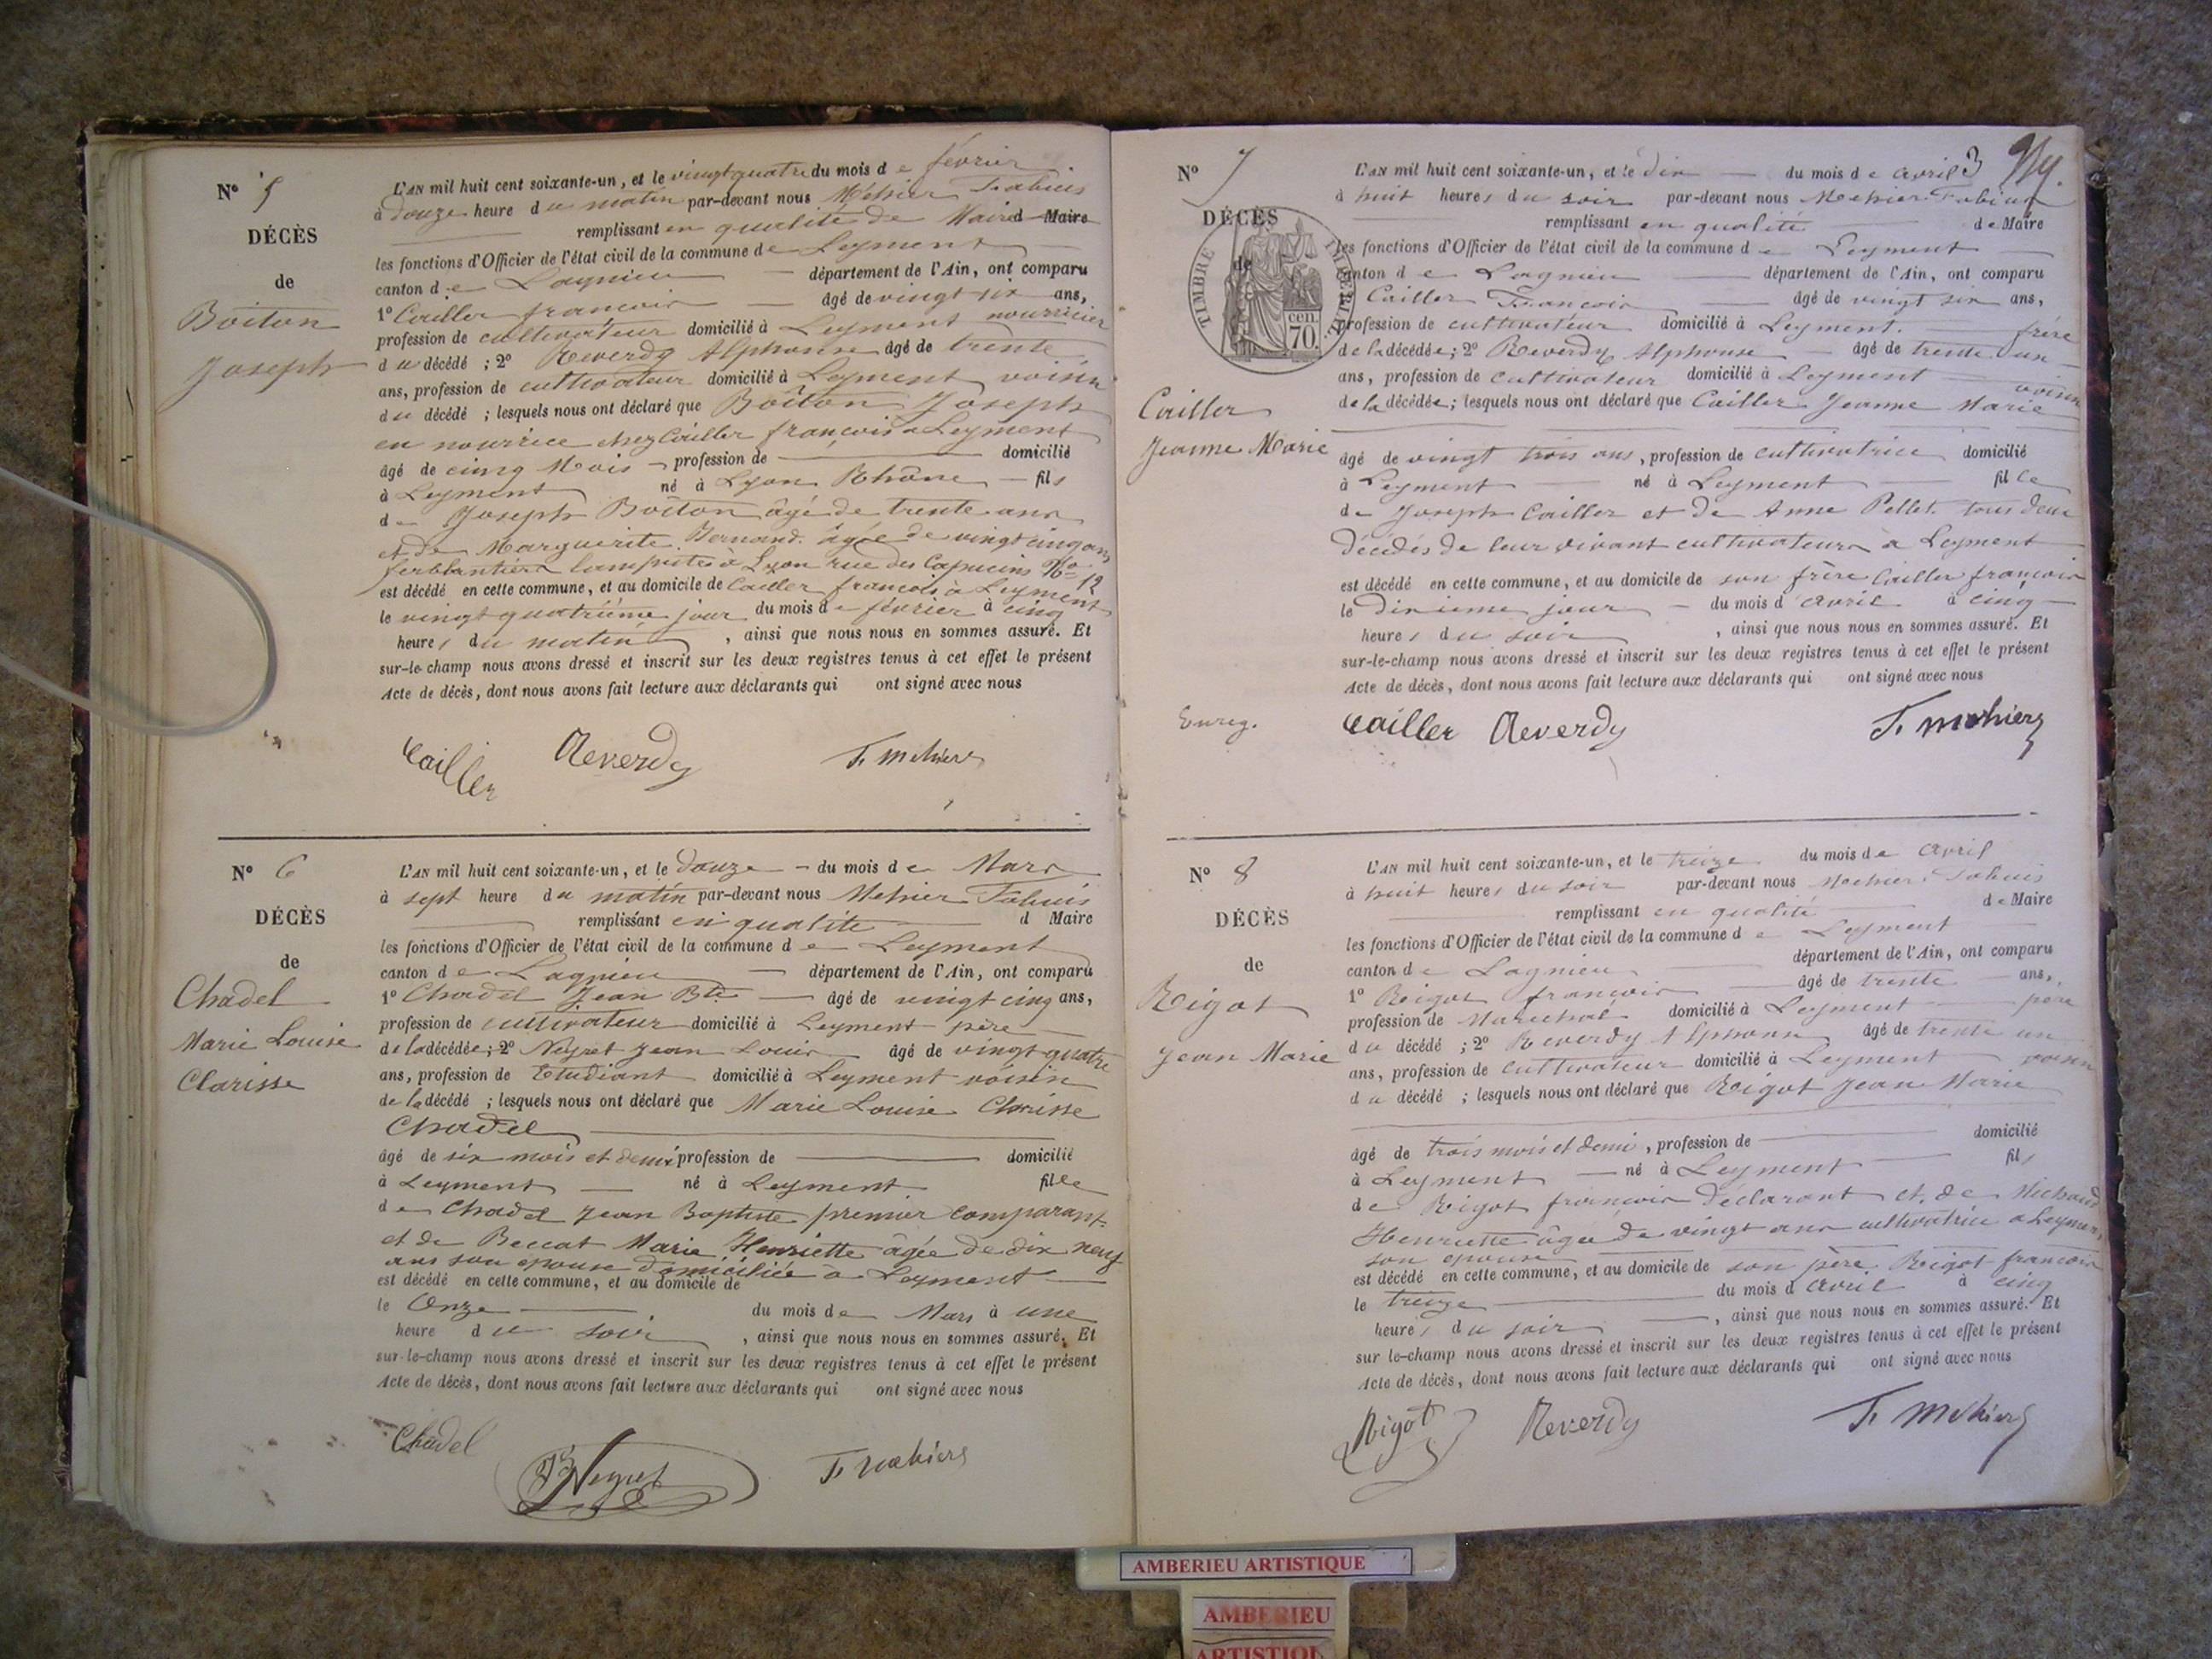 N° 5
DÉCÈS
de
Boiton
Joseph
L'AN mil huit cent soixante-un, et le vingt quatre du mois de février
à douze heure du matin par-devant nous Mehier Fabius
remplissant en qualité de Maire d Maire
les fonctions d'Officier de l'état civil de la commune de Leyment
canton de Lagnieu département de l'Ain, ont comparu
1° Cailler françois âgé de vingt six ans,
profession de cultivateur domicilié à Leyment nourricier
du décédé ; 2° Reverdy Alphonse âgé de trente
ans, profession de cultivateur domicilié à Leyment voisin
du décédé ; lesquels nous ont déclaré que Boiton Joseph
en nourrice chez Cailler françois a Leyment
âgé de cinq Mois profession de domicilié
à Leyment né à Lyon Rhône fils
de Joseph Boiton âgé de trente ans
et de Marguerite Bernand. âgée de vingt cinq ans
ferblantiers lampistes à Lyon rue des Capucins No 12
est décédé en cette commune, et au domicile de Cailler francois à Leyment
le vingt quatrième jour du mois de février à cinq
heures du matin, ainsi que nous nous en sommes assuré. Et
sur-le-champ nous avons dressé et inscrit sur les deux registres tenus à cet effet le présent
Acte de décès, dont nous avons fait lecture aux déclarants qui ont signé avec nous
Cailler Reverdy F. Mehier
N° 6
DÉCÈS
de
Chadel
Marie Louise
Clarisse
L'AN mil huit cent soixante-un, et le douze du mois de Mars
à sept heure du matin par-devant nous Mehier Fabius
remplissant en qualité d Maire
les fonctions d'Officier de l'état civil de la commune de Leyment
canton de Lagnieu département de l'Ain, ont comparu
1° Chadel Jean Bte âgé de vingt cinq ans,
profession de cultivateur domicilié à Leyment père
de la décédée ; 2° Neyret Jean Louis âgé de vingt quatre
ans, profession de Etudiant domicilié à Leyment voisin
de la décédé ; lesquels nous ont déclaré que Marie Louise Clarisse
Chadel
âgé de six mois et demi profession de domicilié
à Leyment né à Leyment fille
de Chadel Jean Baptiste premier comparant
et de Beccat Marie Henriette âgée de dix neuf
ans son epouse domiciliée à Leyment
est décédé en cette commune, et au domicile de
le Onze du mois de Mars à une
heure du soir, ainsi que nous nous en sommes assuré. Et
sur-le-champ nous avons dressé et inscrit sur les deux registres tenus à cet effet le présent
Acte de décès, dont nous avons fait lecture aux déclarants qui ont signé avec nous
Chadel Neyret F. Mehier
3
N° 7
DÉCÈS
de
TIMBRE IMPERIAL
cen.
70.
Cailler
Jeanne Marie
Enreg.
L'AN mil huit cent soixante-un, et le dix du mois de avril
à huit heures du soir par-devant nous Mehier Fabius
remplissant en qualité de Maire
les fonctions d'Officier de l'état civil de la commune de Leyment
canton de Lagnieu département de l'Ain, ont comparu
Cailler Francois âgé de vingt six ans,
profession de cultivateur domicilié à Leyment. frére
de la décédée ; 2° Reverdy Alphonse âgé de trente un
ans, profession de cultivateur domicilié à Leyment voisin
de la décédée ; lesquels nous ont déclaré que Cailler Jeanne Marie
âgé de vingt trois ans, profession de cultivatrice domicilié
à Leyment né à Leyment fille
de Joseph Cailler et de Anne Pellet. tous deux
décédés de leur vivant cultivateurs à Leyment
est décédé en cette commune, et au domicile de son frère Cailler françois
le dixieme jour du mois d avril à cinq
heures du soir, ainsi que nous nous en sommes assuré. Et
sur-le-champ nous avons dressé et inscrit sur les deux registres tenus à cet effet le présent
Acte de décès, dont nous avons fait lecture aux déclarants qui ont signé avec nous
Cailler Reverdy F. Mehier
N° 8
DÉCÈS
de
Rigot
Jean Marie
L'AN mil huit cent soixante-un, et le treize du mois de avril
à huit heures du soir par-devant nous Mehier Fabius
remplissant en qualité de Maire
les fonctions d'Officier de l'état civil de la commune de Leyment
canton de Lagnieu département de l'Ain, ont comparu
1° Rigot françois âgé de trente ans,
profession de Marechal domicilié à Leyment père
du décédé ; 2° Reverdy Alphonse âgé de trente un
ans, profession de cultivateur domicilié à Leyment voisin
du décédé ; lesquels nous ont déclaré que Rigot Jean Marie
âgé de trois mois et demi, profession de domicilié
à Leyment né à Leyment fils
de Rigot françois déclarant et de Michaud
Henriette âgée de vingt ans cultivatrice a Leyment
son epouse
est décédé en cette commune, et au domicile de son père Rigot françois
le treize du mois d avril à cinq
heures du soir, ainsi que nous nous en sommes assuré. Et
sur le-champ nous avons dressé et inscrit sur les deux registres tenus à cet effet le présent
Acte de décès, dont nous avons fait lecture aux déclarants qui ont signé avec nous
Rigot Reverdy F. Mehier
AMBERIEU ARTISTIQUE
AMBERIEU
ARTISTIQU